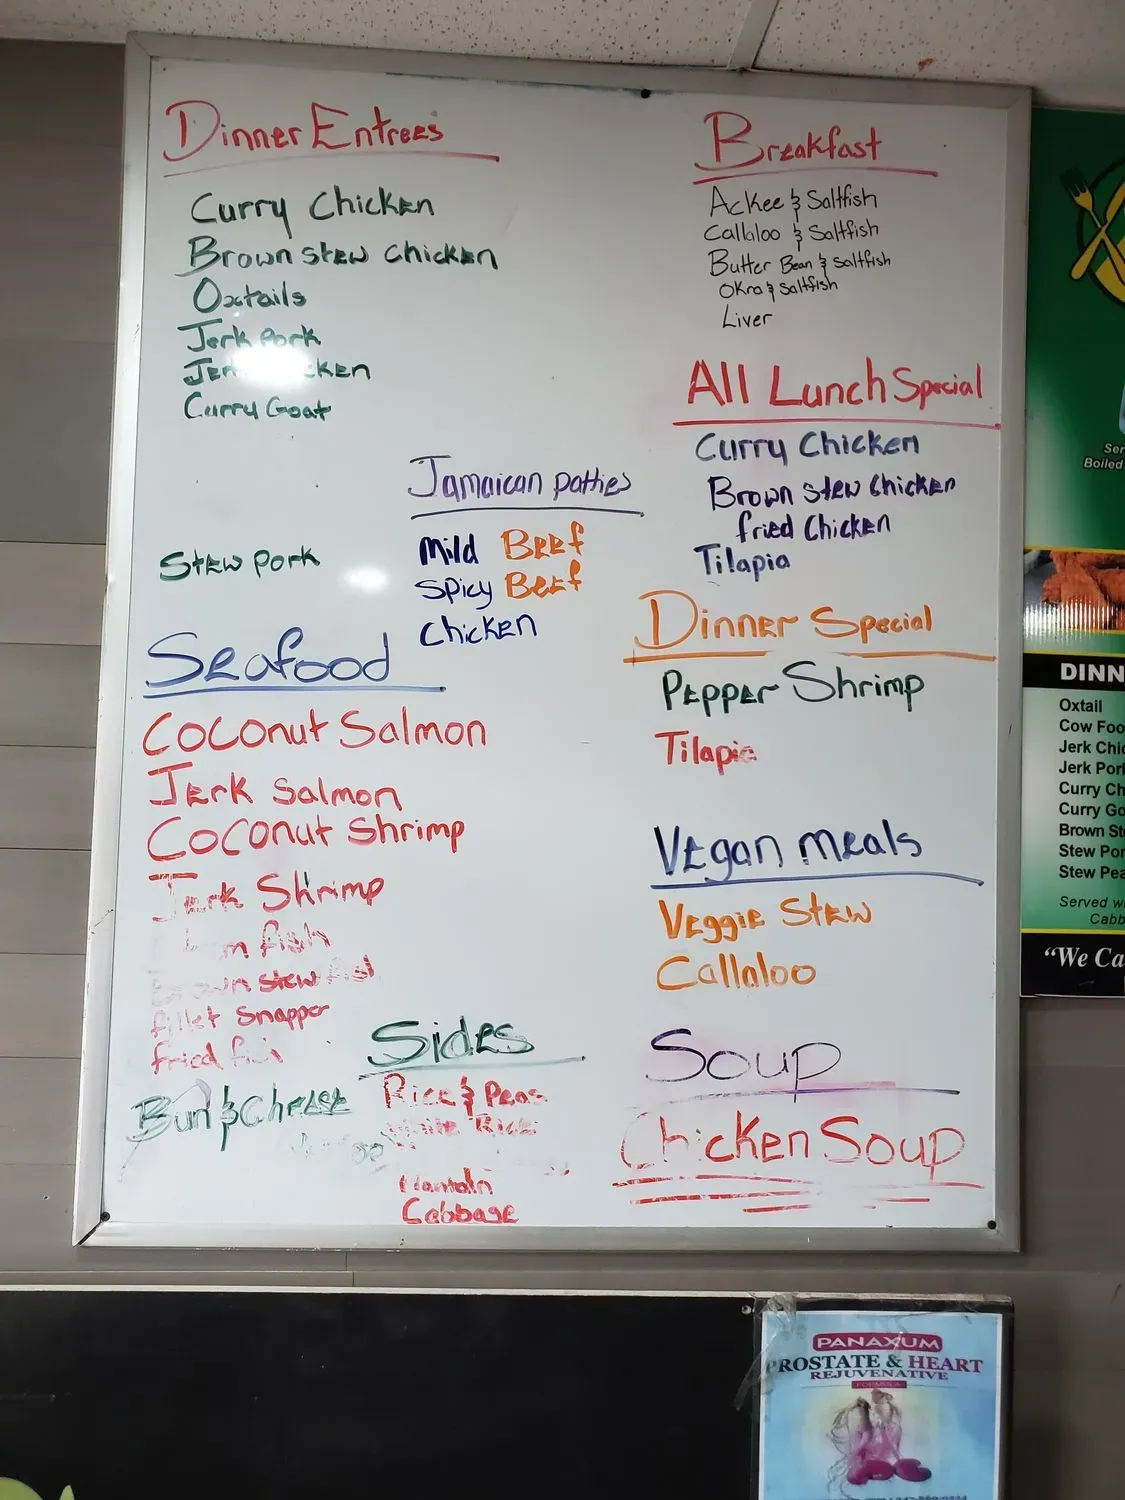 Dinner Entrees
Curry Chicken
Brown Stew Chicken
Oxtails
Jerk Pork
Jerk Chicken
Curry Goat
Stew Pork
Jamaican Patties
Mild Beef
Spicy Beef
Chicken
Seafood
Coconut Salmon
Jerk Salmon
Coconut Shrimp
Jerk Shrimp
fish
Brown Stew fish
fillet Snapper
fried fish
Bun & Cheese
Sides
Rice & Peas
White Rice
Plantain
Cabbage
Breakfast
Ackee & Saltfish
Callaloo & Saltfish
Butter Bean & Saltfish
Okra & Saltfish
Liver
All Lunch Special
Curry Chicken
Brown Stew Chicken
fried Chicken
Tilapia
Dinner Special
Pepper Shrimp
Tilapia
Vegan Meals
Veggie Stew
Callaloo
Soup
Chicken Soup
Ser
Boiled
DINN
Oxtail
Cow Foo
Jerk Chi
Jerk Por
Curry Ch
Curry Go
Brown St
Stew Por
Stew Pea
Served w
Cabb
"We Ca
PANAXUM
PROSTATE & HEART
REJUVENATIVE
FORMULA